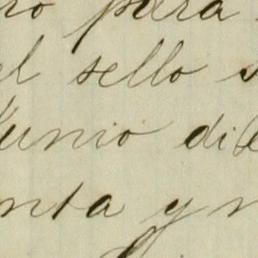 ro para
el sello s
Junio di
nta y n